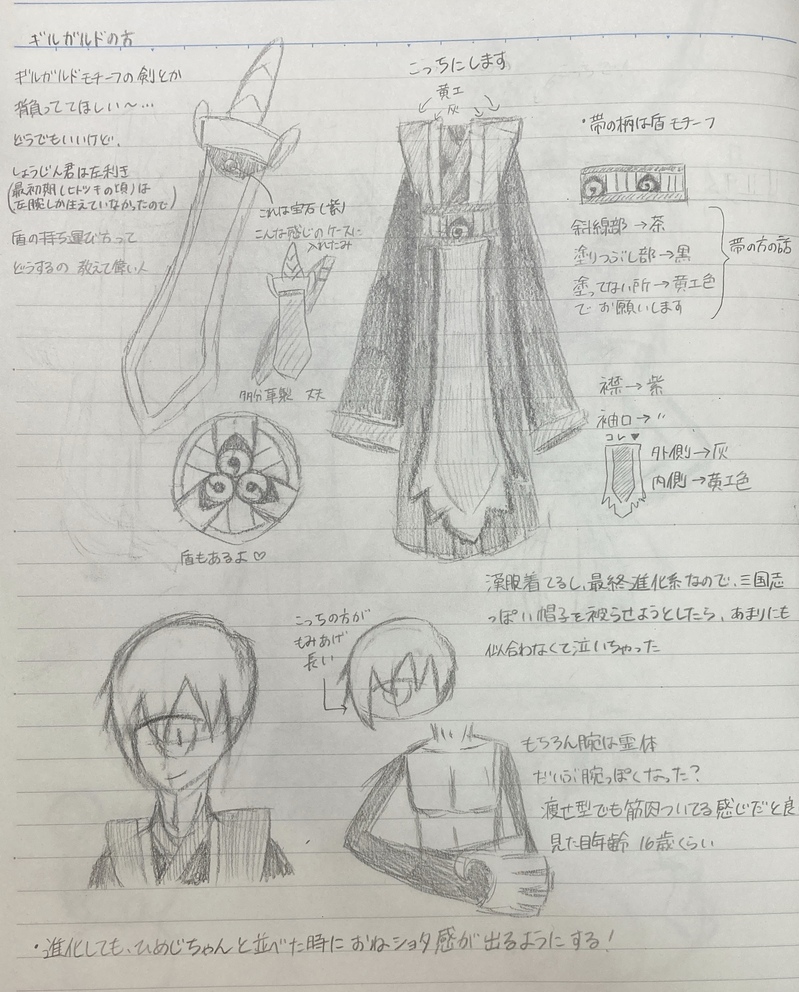 ギルガルドの方
ギルガルドモチーフの剣とか
背負っててほしい〜…
どうでもいいけど、
しょうじん君は左利き
(最初期(ヒトツキの頃)は
左腕しか生えていなかったので)
盾の持ち運び方って
どうするの 教えて偉い人
これは宝石(紫)
こんな感じのケースに
入れたみ
多分革製 丈夫
盾もあるよ♡
こっちにします
黄土
灰
・帯の柄は盾モチーフ
斜線部→茶
塗りつぶし部→黒
塗ってない所→黄土色
で お願いします
帯の方の話
襟→紫
袖口→〃
コレ♥
外側→灰
内側→黄土色
漢服着てるし、最終進化系なので、三国志
っぽい帽子を被らせようとしたら、あまりにも
似合わなくて泣いちゃった
こっちの方が
もみあげ
長い
もちろん腕は霊体
だいぶ腕っぽくなった?
痩せ型でも筋肉ついてる感じだと良
見た目年齢 16歳くらい
・進化しても、ひめじちゃんと並べた時に おねショタ感が出るようにする!